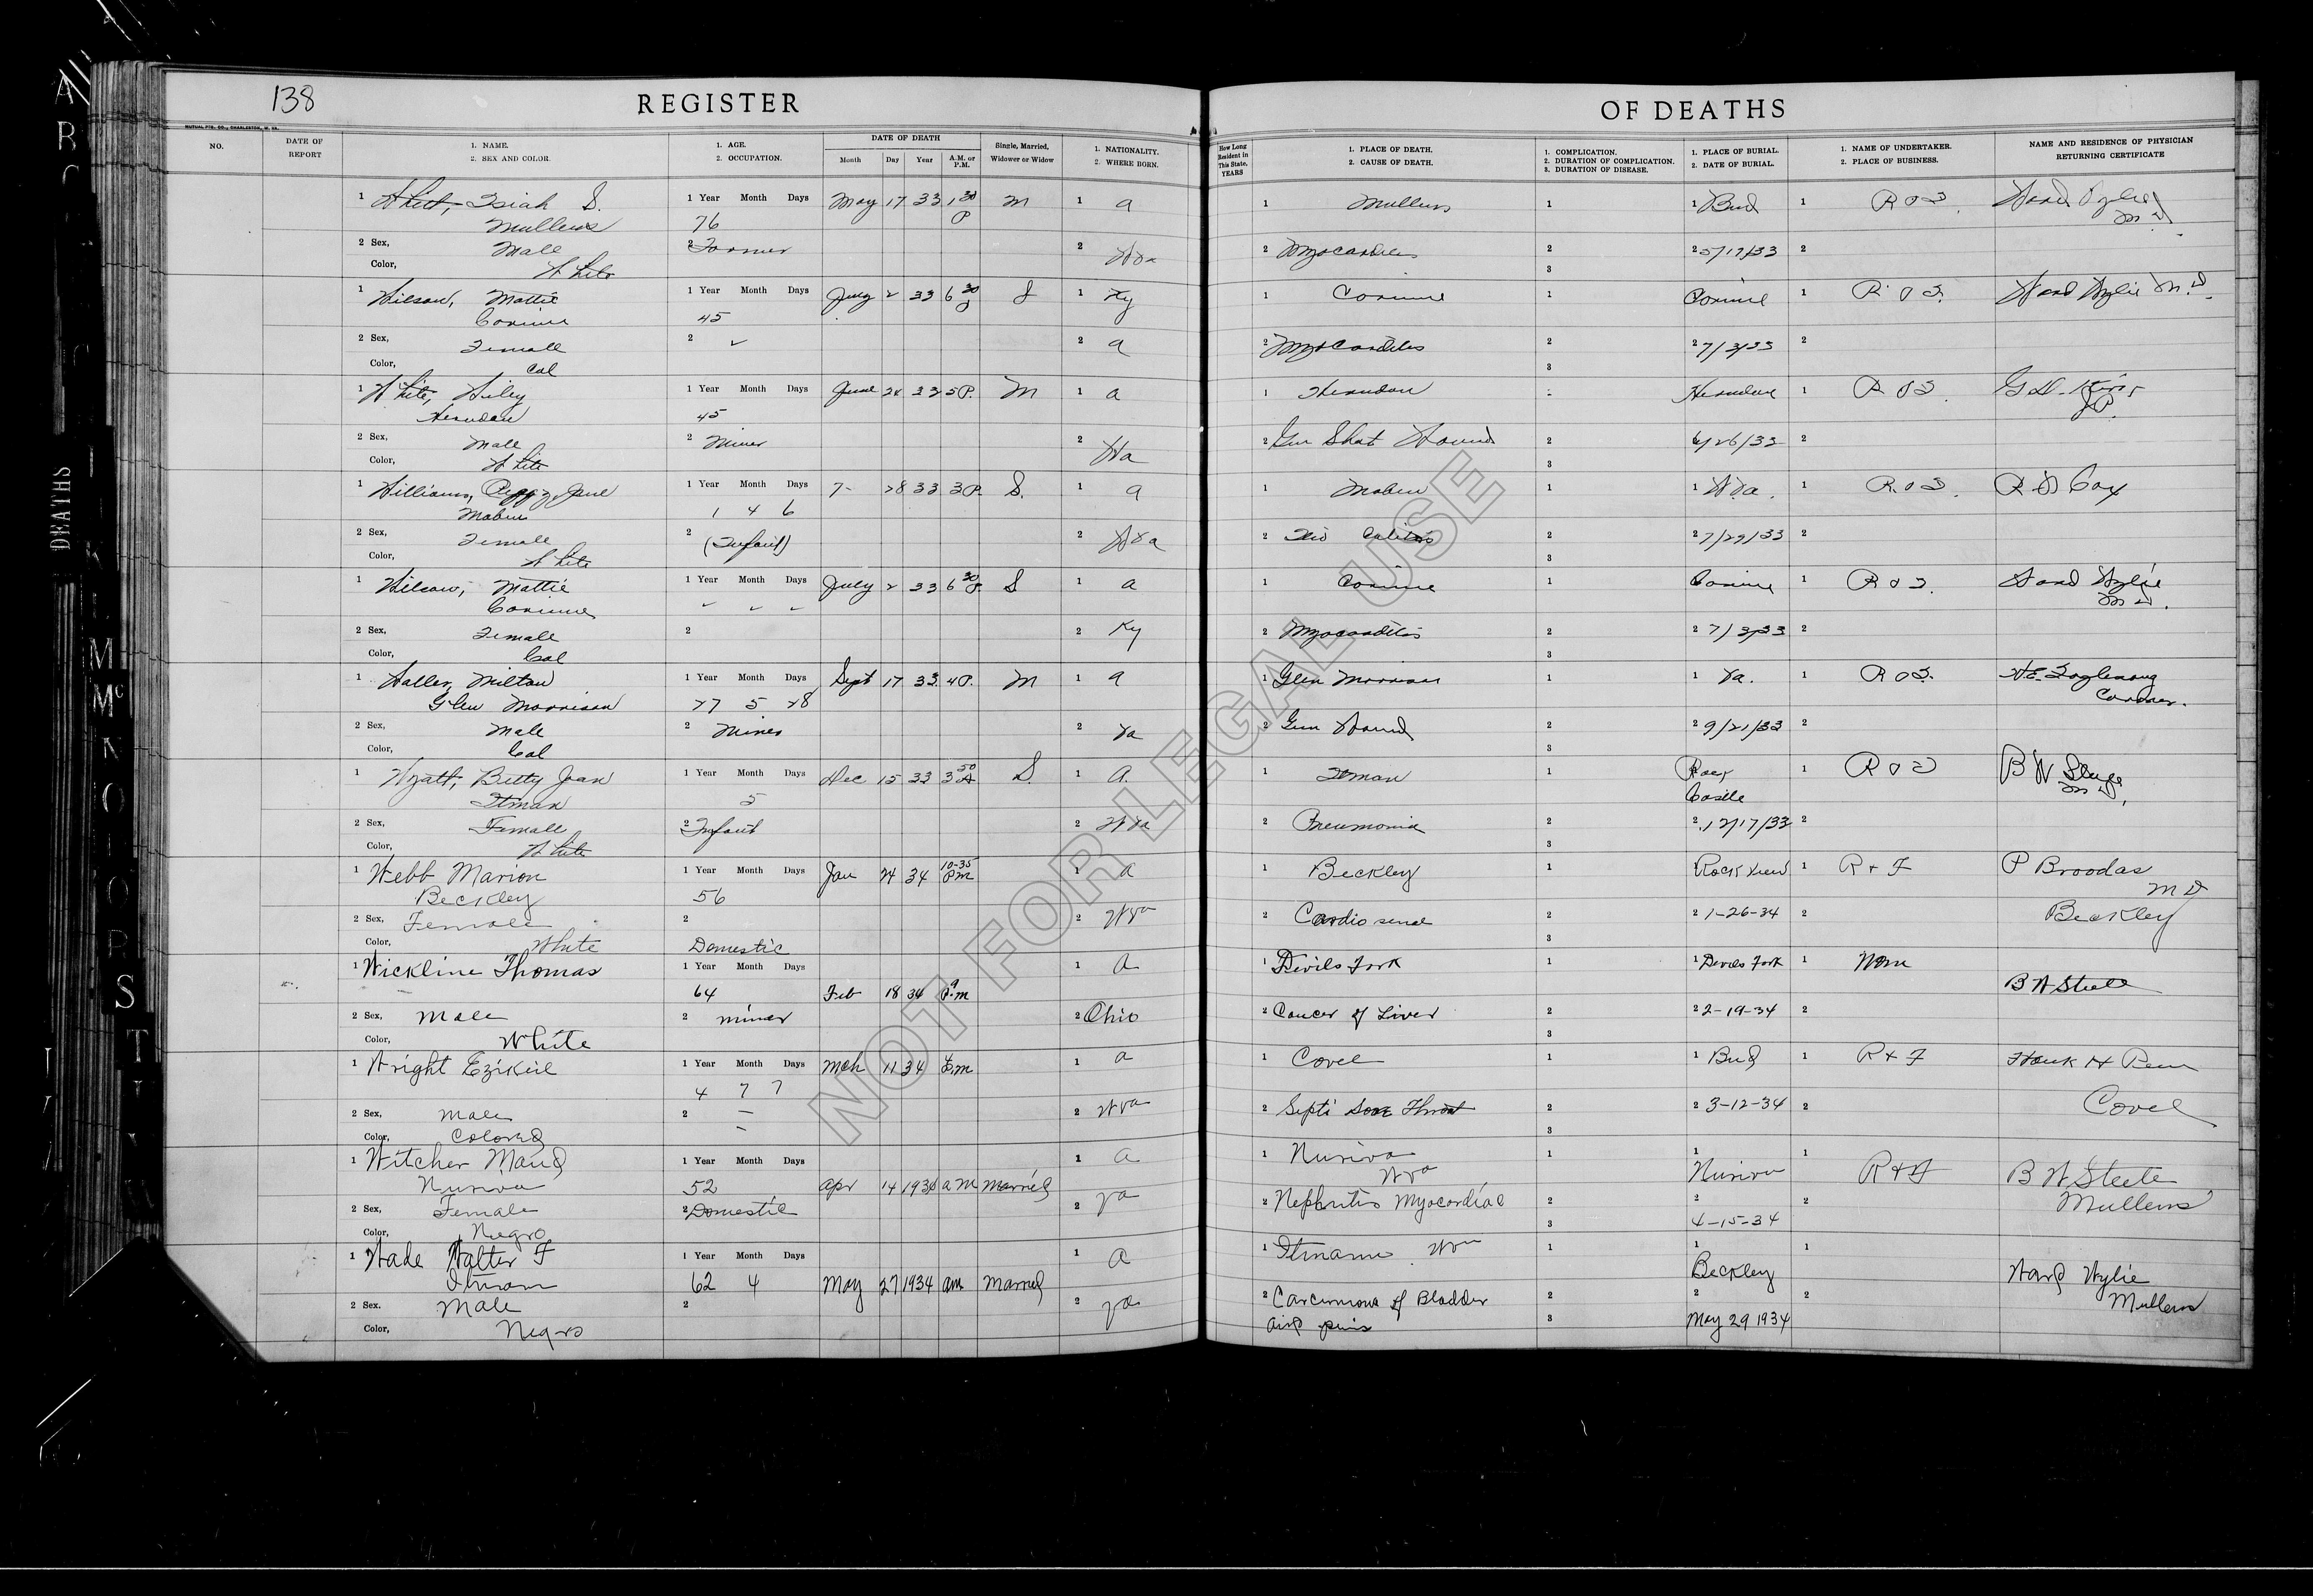 138
REGISTER OF DEATHS
MUTUAL PTG. CO., CHARLESTON, W. VA.
NO. DATE OF REPORT 1. NAME. 2. SEX AND COLOR. 1. AGE. 2. OCCUPATION. DATE OF DEATH Month Day Year A.M. or P.M. Single, Married, Widower or Widow 1. NATIONALITY. 2. WHERE BORN. How Long Resident in This State, YEARS 1. PLACE OF DEATH. 2. CAUSE OF DEATH. 1. COMPLICATION. 2. DURATION OF COMPLICATION. 3. DURATION OF DISEASE. 1. PLACE OF BURIAL. 2. DATE OF BURIAL. 1. NAME OF UNDERTAKER. 2. PLACE OF BUSINESS. NAME AND RESIDENCE OF PHYSICIAN RETURNING CERTIFICATE
1 Isiah S. 1 Year Month Days May 17 33 1 30 P M 1 a 1 Mullens 1 1 Bud 1 Ward Wylie M D
Mullens 76
2 Sex, Male 2 Farmer 2 WVa 2 Myocarditis 2 2 5/17/33 2
Color, White 3
1 Wilson, Mattie 1 Year Month Days July 2 33 6 30 P S 1 Ky 1 Corinne 1 Corinne 1 Ward Wylie M.D.
Corinne 45
2 Sex, Female 2 ✓ 2 a 2 Myocarditis 2 2 7/3/33 2
Color, Col 3
1 White, Wiley 1 Year Month Days June 24 33 5 P. M 1 a 1 Herndon Herndon 1 J.P.
Herndon 45
2 Sex, Male 2 Miner 2 WVa 2 Gun Shot Wound 2 6/26/33 2
Color, White 3
1 Williams, Peggy Jane 1 Year Month Days 7- 28 33 3 P. S. 1 a 1 Maben 1 1 W.Va. 1 R. D Cox
Maben 1 4 6
2 Sex, Female 2 (Infant) 2 WVa 2 Ileo Colitis 2 2 7/29/33 2
Color, White 3
1 Wilson, Mattie 1 Year Month Days July 2 33 6 30 P. S 1 a 1 Corinne 1 Corinne 1 Ward Wylie M D.
Corinne ✓ ✓ ✓
2 Sex, Female 2 2 Ky 2 Myocarditis 2 2 7/3/33 2
Color, Col 3
1 Waller, Milton 1 Year Month Days Sept 17 33 4 P. M 1 a 1 Glen Morrison 1 1 Va. 1 Coroner.
Glen Morrison 27 5 28
2 Sex, Male 2 Miner 2 Va 2 Gun Wound 2 2 9/21/33 2
Color, Col 3
1 Wyatt, Betty Jean 1 Year Month Days Dec 15 33 3 50 A S. 1 A. 1 Itman 1 Rock Castle 1 B W Steele M D,
Itman 5
2 Sex, Female 2 Infant 2 WVa 2 Pneumonia 2 2 12/17/33 2
Color, White 3
1 Webb Marion 1 Year Month Days Jan 24 34 10-35 Pm 1 a 1 Beckley 1 Rock View 1 R & F P Broodas M D
Beckley 56
2 Sex, Female 2 2 WVa 2 Cardio renal 2 2 1-26-34 2 Beckley
Color, White Domestic 3
1 Wickline Thomas 1 Year Month Days 1 A 1 Devils Fork 1 1 Devils Fork 1 None
64 Feb 18 34 9 P.m B W Steele
2 Sex, Male 2 miner 2 Ohio 2 Cancer of Liver 2 2 2-19-34 2
Color, White 3
1 Wright Ezikiel 1 Year Month Days Mch 11 34 1 a 1 Covel 1 1 Bud 1 R & F
4 7 7
2 Sex, Male 2 — 2 WVa 2 Septi Sore Throat 2 2 3-12-34 2 Covel
Color, Colored — 3
1 Witcher Maud 1 Year Month Days 1 a 1 Nuriva 1 1 1
Nuriva 52 Apr 14 1934 am Married WVa Nuriva R & F B W Steele
2 Sex, Female 2 Domestic 2 Va 2 Nephritis Myocardiac 2 2 2 Mullens
Color, Negro 3 4-15-34
1 Wade Walter F 1 Year Month Days 1 A 1 Itmann WVa 1 1 1
Itman 62 4 May 27 1934 am Married Beckley Ward Wylie
2 Sex. Male 2 2 Va 2 Carcinoma of Bladder 2 2 2 Mullens
Color, Negro and penis 3 May 29 1934
NOT FOR LEGAL USE
DEATHS